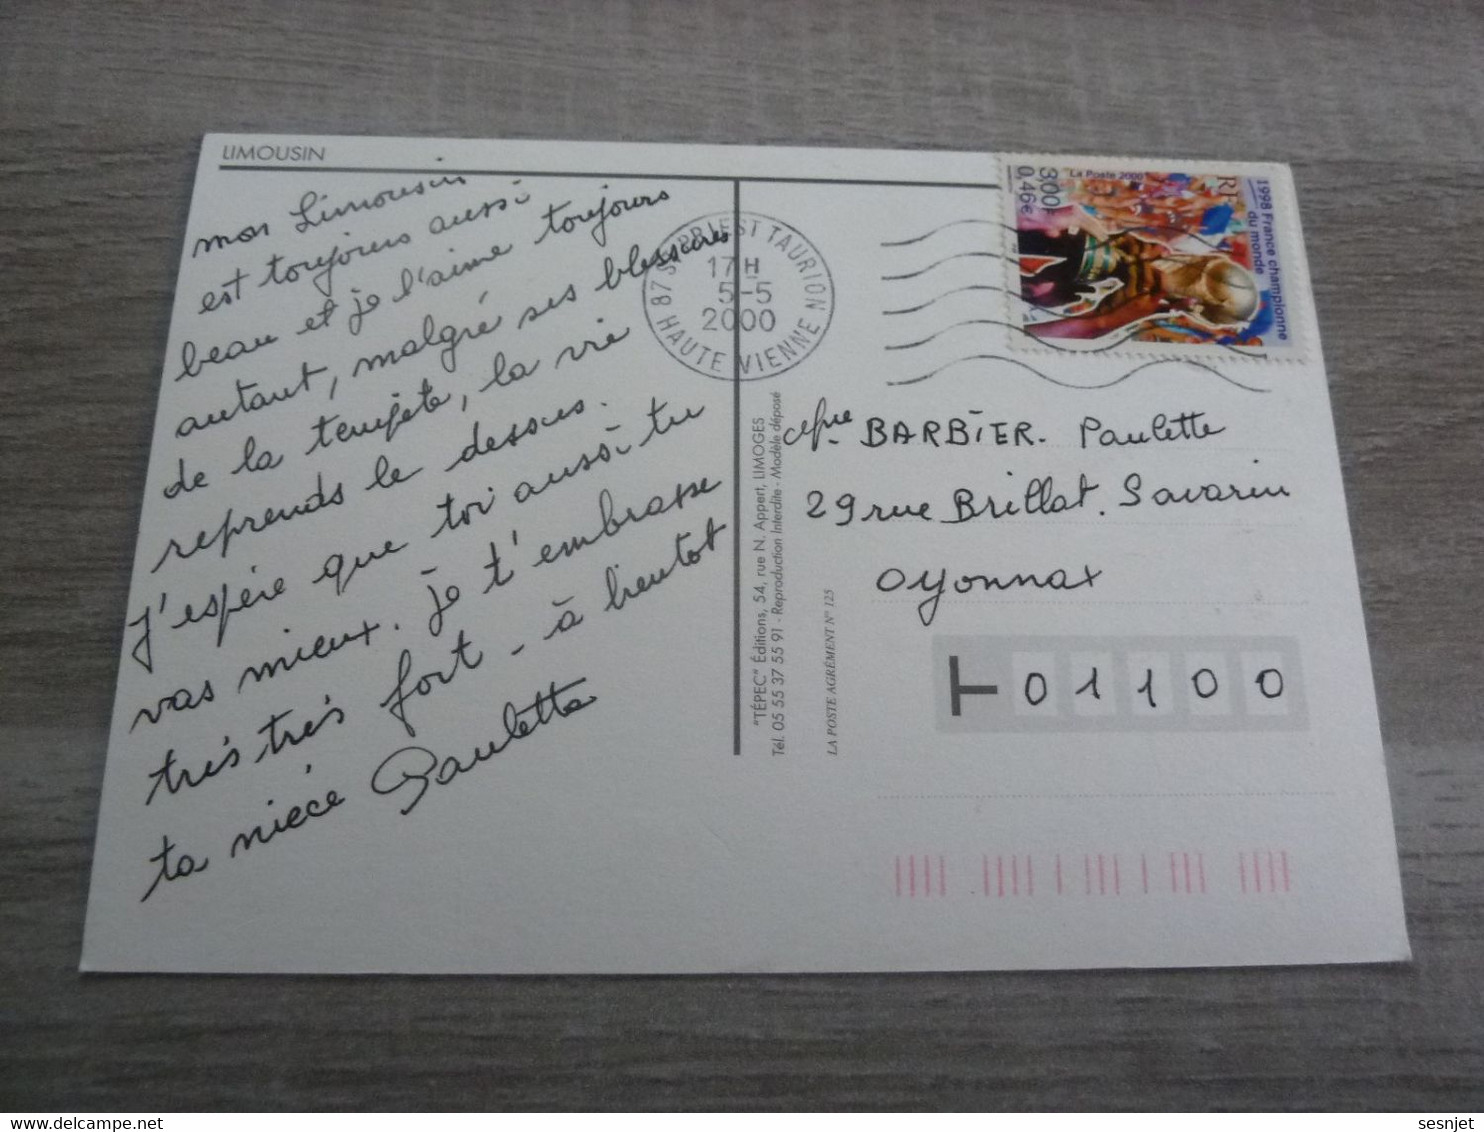 LIMOUSIN
mon Limousin
est toujours aussi
beau et je l'aime toujours
autant, malgré ses blessures
de la tempête, la vie
reprends le dessus.
J'espère que toi aussi tu
vas mieux. je t'embrasse
très très fort - à bientot
ta nièce Paulette
87 ST PRIEST TAURION
17 H
5-5
2000
HAUTE VIENNE
1998 France championne
du monde
RF
La Poste 2000
3,00F
0,46€
"TÉPEC" Éditions, 54, rue N. Appert, LIMOGES
Tél. 05 55 37 55 91 - Reproduction Interdite - Modèle déposé
LA POSTE AGRÉMENT N° 125
BARBIER. Paulette
29 rue Brillat. Savarin
Oyonnax
01100
delcampe.net
sesnjet